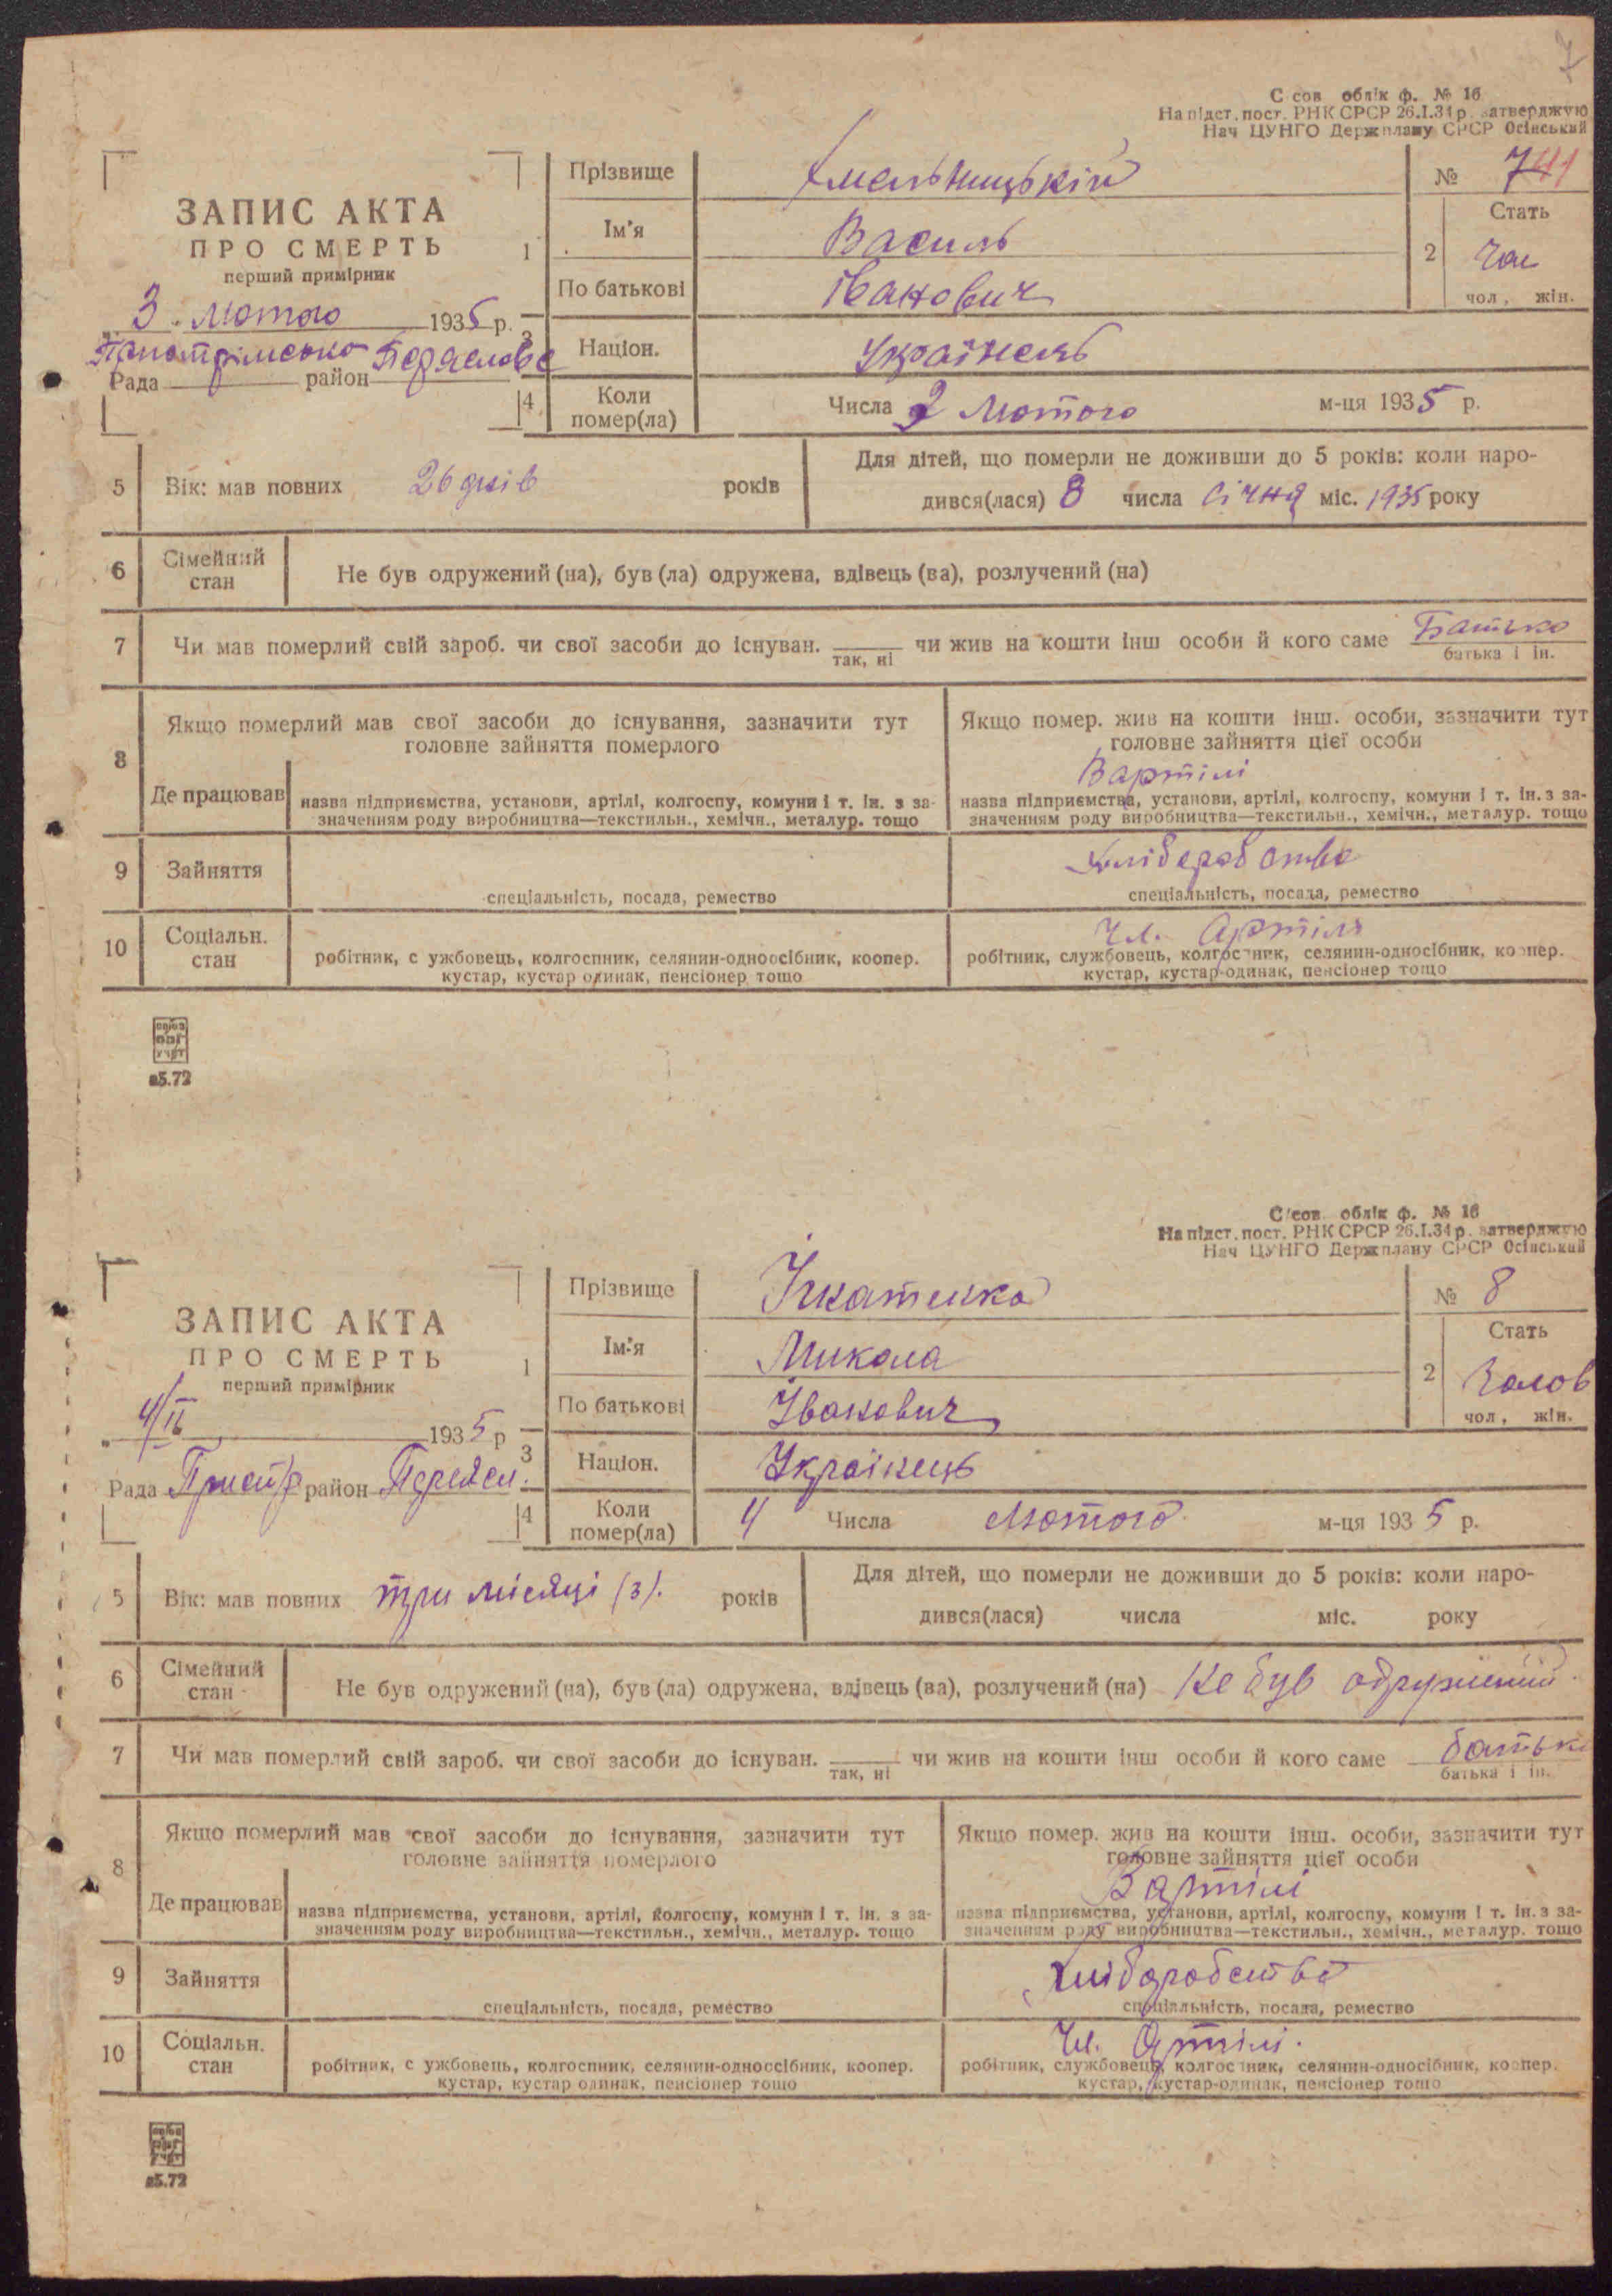 7
С сов облік ф. № 16
На підст. пост. РНК СРСР 26.I.34 р. затверджую
Нач ЦУНГО Держплану СРСР Осінський
ЗАПИС АКТА
ПРО СМЕРТЬ
перший примірник
3 Лютого 1935 р.
Рада район
1 Прізвище Хмельницькій
№ 7
Ім'я Василь
2 Стать Чол
чол, жін.
По батькові Іванович
3 Націон. Українець
4 Коли помер(ла) Числа 2 Лютого м-ця 1935 р.
5 Вік: мав повних 26 днів років
Для дітей, що померли не доживши до 5 років: коли наро-
дився(лася) 8 числа Січня міс. 1935 року
6 Сімейний стан Не був одружений (на), був (ла) одружена, вдівець (ва), розлучений (на)
7 Чи мав померлий свій зароб. чи свої засоби до існуван. чи жив на кошти інш особи й кого саме Батько
так, ні батька і ін.
8 Якщо померлий мав свої засоби до існування, зазначити тут
головне зайняття померлого
Якщо помер. жив на кошти інш. особи, зазначити тут
головне зайняття цієї особи
Вартілі
Де працював назва підприємства, установи, артілі, колгоспу, комуни і т. ін. з за-
значенням роду виробництва—текстильн., хемічн., металур. тощо
назва підприємства, установи, артілі, колгоспу, комуни і т. ін. з за-
значенням роду виробництва—текстильн., хемічн., металур. тощо
9 Зайняття
спеціальність, посада, ремество
спеціальність, посада, ремество
10 Соціальн. стан
Чл. Артілі
робітник, с ужбовець, колгоспник, селянин-одноосібник, коопер.
кустар, кустар одинак, пенсіонер тощо
робітник, службовець, колгоспник, селянин-односібник, коопер.
кустар, кустар-одинак, пенсіонер тощо
а5.72
С/сов облік ф. № 16
На підст. пост. РНК СРСР 26.I.34 р. затверджую
Нач ЦУНГО Держплану СРСР Осінський
ЗАПИС АКТА
ПРО СМЕРТЬ
перший примірник
4/II 1935 р
Рада район Переясл.
1 Прізвище Ігнатенко
№ 8
Ім'я Микола
2 Стать Чолов
чол, жін.
По батькові Іванович
3 Націон. Українець
4 Коли помер(ла) 4 Числа Лютого м-ця 1935 р.
5 Вік: мав повних три місяці (3). років
Для дітей, що померли не доживши до 5 років: коли наро-
дився(лася) числа міс. року
6 Сімейний стан Не був одружений (на), був (ла) одружена, вдівець (ва), розлучений (на) Не був одружений
7 Чи мав померлий свій зароб. чи свої засоби до існуван. чи жив на кошти інш особи й кого саме батьк
так, ні батька і ін.
8 Якщо померлий мав свої засоби до існування, зазначити тут
головне зайняття померлого
Якщо помер. жив на кошти інш. особи, зазначити тут
головне зайняття цієї особи
В артілі
Де працював назва підприємства, установи, артілі, колгоспу, комуни і т. ін. з за-
значенням роду виробництва—текстильн., хемічн., металур. тощо
назва підприємства, установи, артілі, колгоспу, комуни і т. ін. з за-
значенням роду виробництва—текстильн., хемічн., металур. тощо
9 Зайняття
Хліборобство
спеціальність, посада, ремество
спеціальність, посада, ремество
10 Соціальн. стан
Чл. Артілі.
робітник, с ужбовець, колгоспник, селянин-одноосібник, коопер.
кустар, кустар одинак, пенсіонер тощо
робітник, службовець, колгоспник, селянин-односібник, коопер.
кустар, кустар-одинак, пенсіонер тощо
а5.72